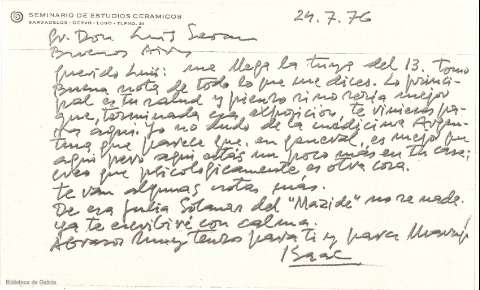 SEMINARIO DE ESTUDIOS CERAMICOS
SARGADELOS - CERVO - LUGO - TLFNO. 21
24.7.76
Sr. Don Luis Seoane
Buenos Aires
Querido Luis: me llega la tuya del 13. Tomo
buena nota de todo lo que me dices. Lo princi-
pal es tu salud y pienso si no sería mejor
que, terminada esa exposición, te vinieras pa-
ra aquí. Yo no dudo de la medicina Argen-
tina que parece que, en general, es mejor que
aquí pero aquí estás un poco más en tu casa;
creo que psicológicamente es otra cosa.
te van algunas notas más.
De esa Julia Solanar del "Mazide" no se nada.
ya te escribiré con calma.
Abrazos muy tensos para ti y para Maruja
Isaac
Biblioteca de Galicia